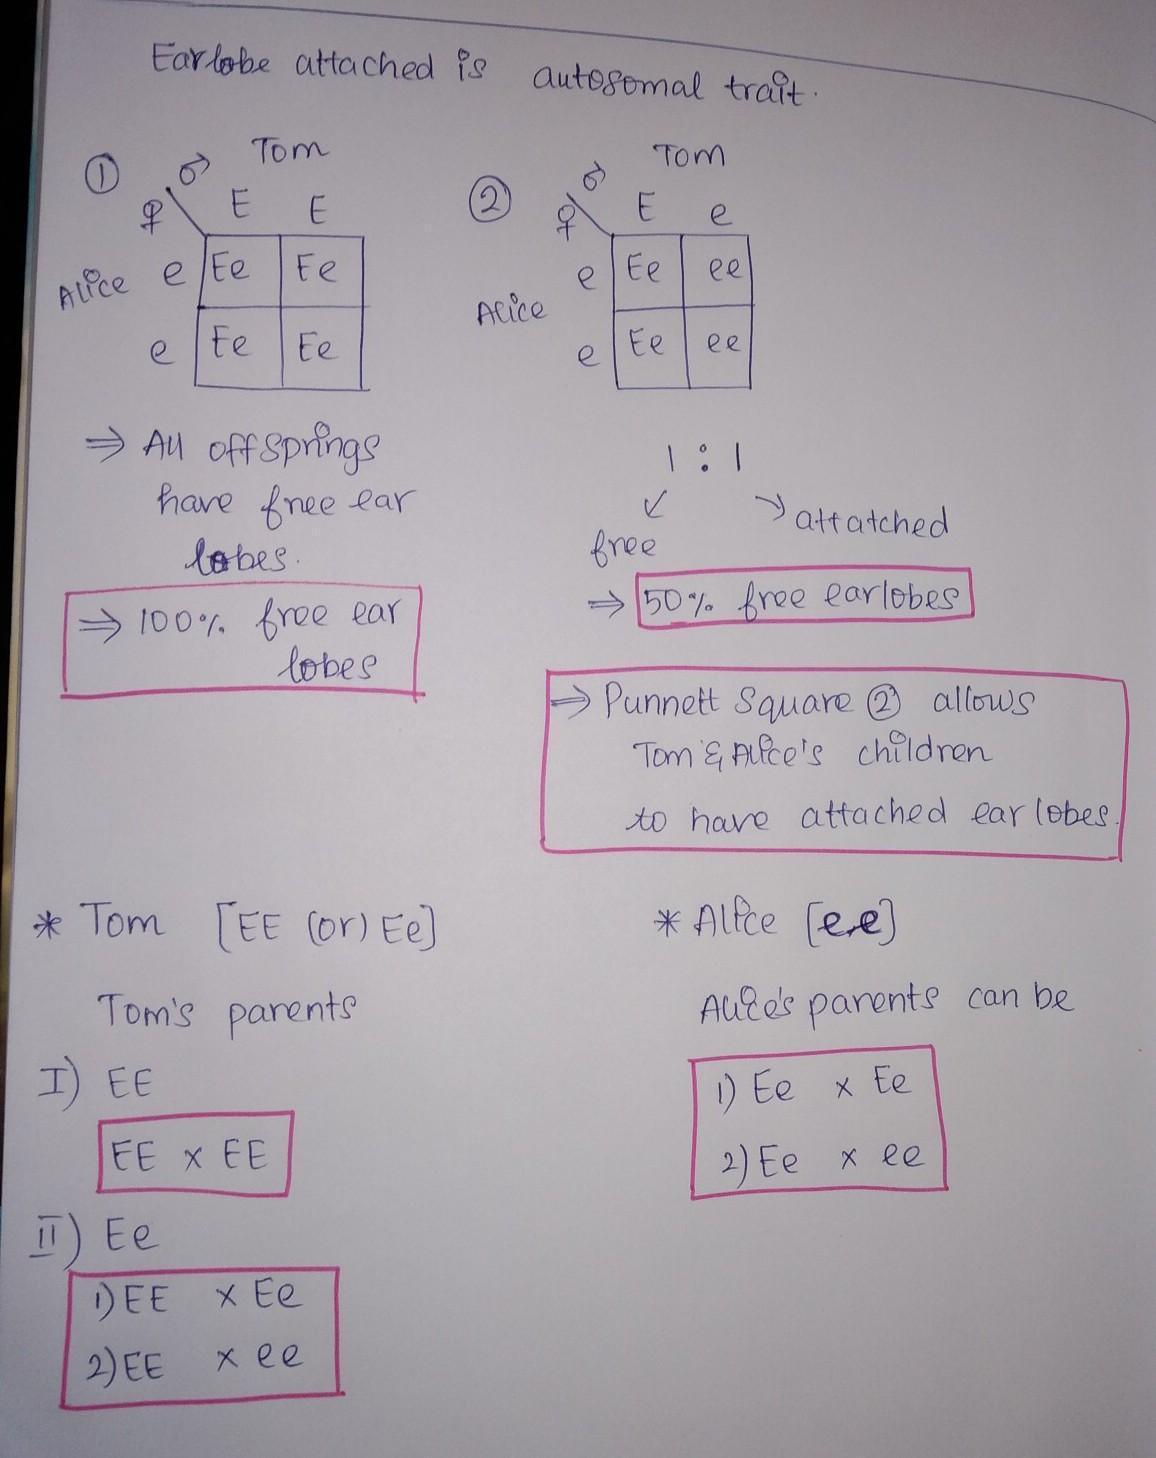 Earlobe attached is autosomal trait.
① ♂ Tom
♀ E E
Alice e Ee Ee
e Ee Ee
⇒ All offsprings
have free ear
lobes.
⇒ 100% free ear
lobes
② ♂ Tom
♀ E e
Alice e Ee ee
e Ee ee
1 : 1
free
attatched
⇒ 50% free earlobes
⇒ Punnett Square ② allows
Tom & Alice's children
to have attached ear lobes.
* Tom [EE (or) Ee]
Tom's parents
I) EE
EE x EE
II) Ee
1) EE x Ee
2) EE x ee
* Alice [ee]
Alice's parents can be
1) Ee x Ee
2) Ee x ee